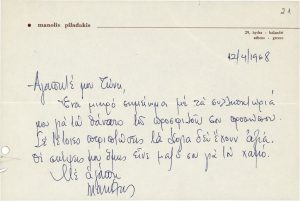 21
manolis piladakis
29, hydra - halandri
athens - greece
12/4/1968
Αγαπητέ μου Γιάννη,
Ένα μικρό σημείωμα με τα συλλυπητήριά
μου για το θάνατο του προσφιλούς σου προσώπου.
Σε τέτοιες περιπτώσεις τα λόγια δεν έχουν αξία.
Οι σκέψεις μου όμως είνε μαζί σου για το χαμό.
Με αγάπη
Μανώλης